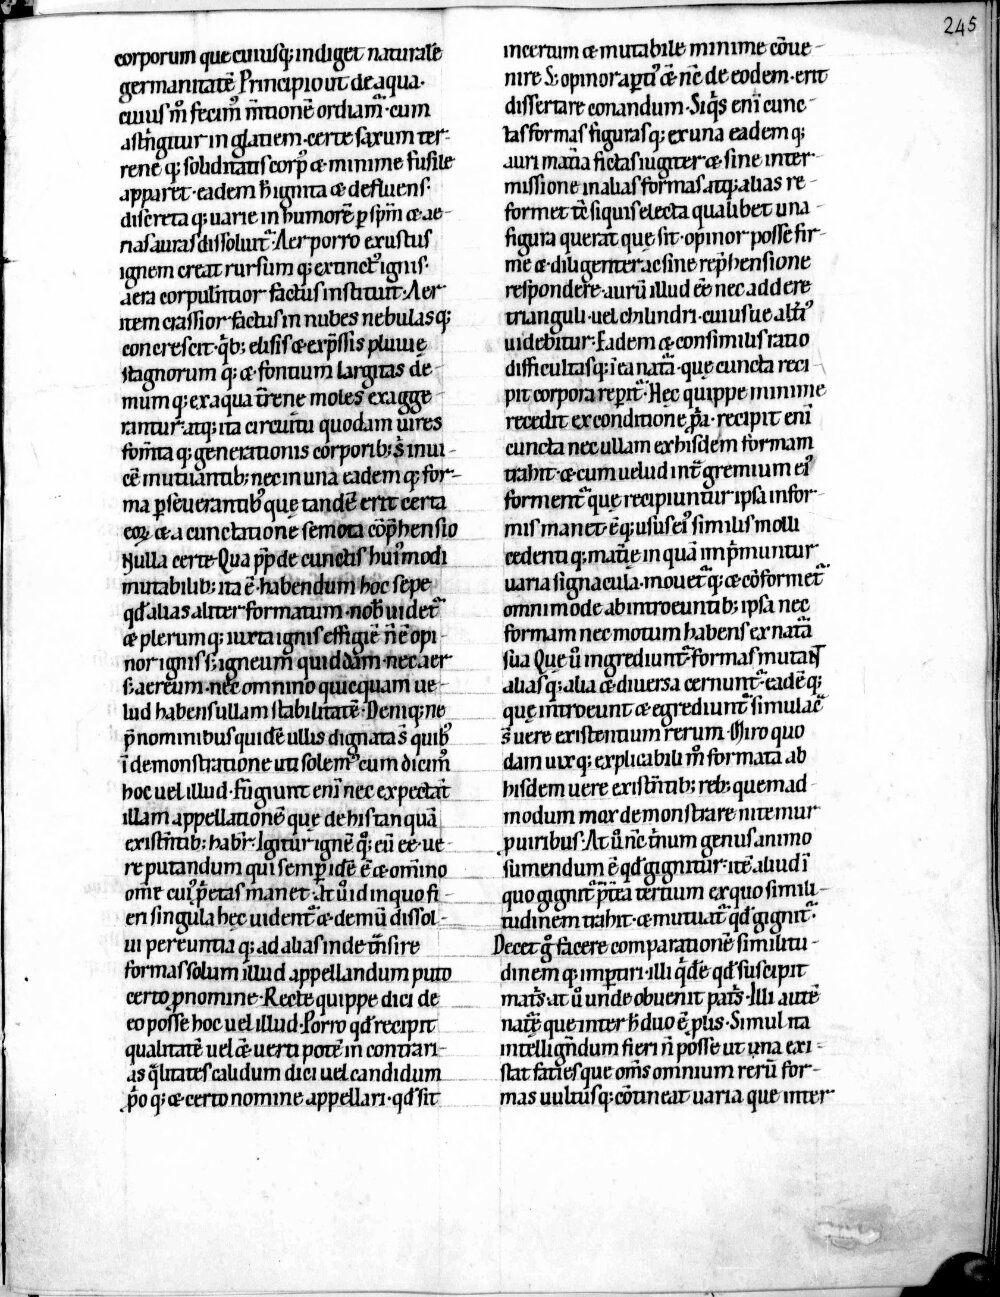 245
corporum que cuiusq; indiget naturale
germanitatē Principio ut de aqua·
cuius m̊ fecim᷒ m̄tionē ordiam̄· cum
astͥngitur in glatiem· certe saxum ter-
rene q; soliditatis corp᷒ & minime fusile
apparet· eadem h̄ ignita & defluens·
discreta q; uarie in humorē p̱ sp̄m & ae-
rias auras dissoluit᷑· Aer porro exustus
ignem creat rursum q; extinct᷒ ignis·
aera corpulentior factus instituit· Aer
item crassior factus in nubes nebulas q;
concrescit· qͥb; elisis & exp̄ssis pluuię
stagnorum q; & fontium largitas de-
mum q; ex aqua t̄rene moles exagge-
rantur· atq; ita circuitu quodam uires
fom̄ta q; generationis corporib; s̄ inui-
cē mutuantib; nec in una eadem q; for-
ma p̱seuerantib᷒ que tandē erit certa
eoꝝ & a cunctatione semota cōp̄hensio
Nulla certe· Qua pp̄ de cunctis hui᷒modi
mutabilib; ita ē habendum hoc sepe
qd̄ alias aliter formatum· nob̄ uidet᷑
& plerum q; iuxta ignis effigiē n̄ ē opi-
nor ignis s; igneum quiddam· nec aer
s; aereum· nec omnino quicquam ue-
lud habens ullam stabilitatē· Deniq; ne
p̄nominibus quidē ullis dignata s̄ quib᷒
ī demonstratione uti solem᷒ cum dicim᷒
hoc uel illud· Fūgiunt enī nec expectāt
illam appellationē que de his tanquā
existn̄tib; habr̄· Igitur ignē qͦ; eū eē ue-
re putandum qui semp̱ idē ē & om̄ino
om̄e cui᷒ p̱p̄etas manet· At ů id in quo fi-
en singula hęc uident᷑ & demū dissol-
ui pereuntia q; ad alias inde tn̄sire
formas solum illud appellandum puto
certo p̱nomine· Recte quippe dici de
eo posse hoc uel illud· Porro qd̄ recipit
qualitatē uel & ē uerti potē in contrari-
as qͣlitates calidum dici uel candidum
p̄o q; & certo nomine appellari· qd̄ sit
incertum & mutabile minime cōue-
nire S; opinor ap̱ti᷒ & ē nē de eodem· erit
dissertare conandum· Si qͥs enī cunc-
tas formas figuras q; ex una eadem q;
auri mat̄ia fictas iugiter & sine inter-
missione in alias formas atq; alias re-
formet tē si quis electa qualibet una
figura querat quę sit· opinor posse fir-
me & diligenter ac sine rep̄hensione
respondere· aurū illud eē nec addere
trianguli· uel chilindri· cuiusue alt̄i᷒
uidebitur: Eadem & consimilis ratio
difficultasq; ī ea nat̄a· quę cuncta reci-
pit corpora rep̱it᷑· Hęc quippe minime
recedit ex conditione p̱p̄a· recipit enī
cuncta nec ullam ex hisdem formam
trahit· & cum uelud int̄ gremium ei᷒
forment᷑ quę recipiuntur ipsa infor-
mis manet· ē q; usus ei᷒ similis molli
cedenti q; mat̄ie in quā imp̄muntur
uaria signacula· mouet᷑ q; & cōformet᷑
omnimode ab introeuntib; ipsa nec
formam nec motum habens ex nat̄a
sua Quę ů ingrediunt᷑ formas mutaNT
alias q; alia & diuersa cernunt᷑ eadē q;
quę introeunt & egrediunt᷑ simulac̄
s̄ uere existentium rerum· Miro quo
dam uix q; explicabili m̊ formata ab
hisdem uere existn̄tib; reb; quemad-
modum mox demonstrare nitemur
p̱ uiribus· At ů nc̄ t̄num genus animo
sumendum ē qd̄ gignitur· itē aliud ī
quo gignit᷑ p̄t̄ea tertium ex quo simili-
tudinem trahit· & mutuat᷑ qd̄ gignit᷑·
Decet g̊ facere comparationē similitu-
dinem q; imp̱tiri· illi qͥdē qd̄ suscipit
mat̄s· at ů unde obuenit pat̄s· Illi autē
nat̄ę que inter h̄ duo ē p̱lis· Simul ita
intellign̄dum fieri n̄ posse ut una exi-
stat faties que om̄s omnium rerū for-
mas uultus q; cōtineat uaria que inter